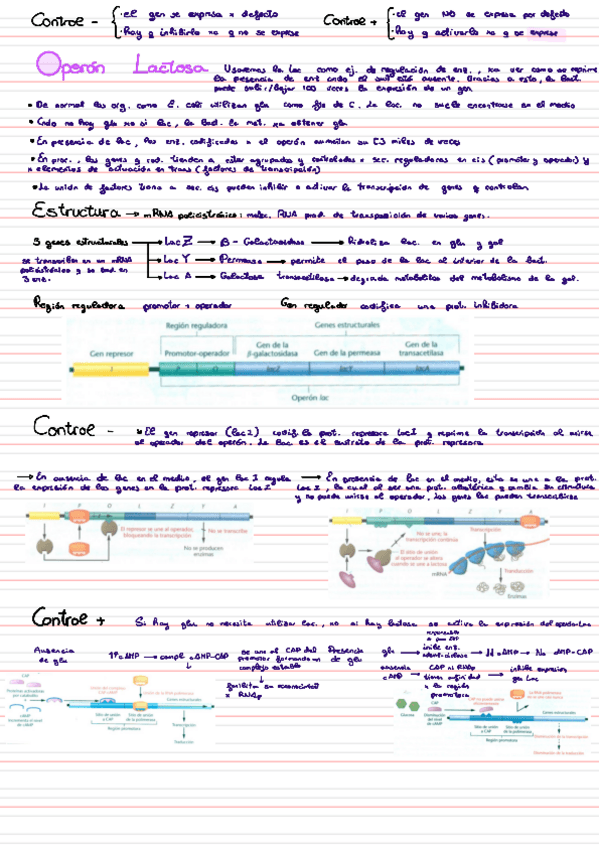 Control -
· El gen se expresa x defecto
· Hay q inhibirlo xa q no se exprese
Control +
· El gen NO se expresa por defecto
· Hay q activarlo xa q se exprese
Operón Lactosa
Usaremos la lac como ej. de regulación de
la presencia de
puede subir/bajar 100 veces la expresión de un gen
• De normal los org. como E. coli utilizan glu como fte de C. La lac. no suele encontrarse en el medio
• Cndo no hay glu xo si lac, la bact. la met. xa obtener glu
• En presencia de lac, las enz. codificadas x el operón aumentan su miles de veces
• En proc., los genes q cod. tienden a estar agrupados y controlados x sec. reguladoras en cis (promotor y operador) y
x elementos de activación en trans (factores de transcripción)
• La unión de factores trans a sec. cis pueden inhibir o activar la transcripción de genes q controlan
Estructura → mRNA policistrónico: molec. RNA prod. de transposición de varios genes.
3 genes estructurales
se transcriben en un mRNA
policistrónico y se trad. en
3 enz.
Lac Z → β - Galactosidasa → Hidroliza lac. en glu y gal
Lac Y → Permeasa → permite el paso de la lac al interior de la bact.
Lac A → Galactosa transacetilasa → degrada metabolitos del metabolismo de la gal.
Región reguladora promotor + operador
Gen regulador codifica una prot. inhibidora
Región reguladora
Genes estructurales
Gen represor
Promotor-operador
Gen de la β-galactosidasa
Gen de la permeasa
Gen de la transacetilasa
I P O lacZ lacY lacA
Operón lac
Control -
• El gen represor (lac I) codif. la prot. represora lac I y reprime la transcripción al unirse
al operador del operón. La lac es el sustrato de la prot. represora
→ En ausencia de lac en el medio, el gen lac I regula
la expresión de los genes en la prot. represora lac I
→ En presencia de lac en el medio, esta se une a la prot.
lac I, la cual al ser una prot. alostérica y cambia su estructura
y no puede unirse al operador, los genes lac pueden transcribirse
I P O Z Y A
El represor se une al operador,
bloqueando la transcripción
No se transcribe
No se producen
enzimas
I P O L Z Y A
No se une; la
transcripción continúa
Transcripción
El sitio de unión
al operador se altera
cuando se une a lactosa
mRNA
Traducción
Enzimas
Control +
Si hay glu no necesita utilizar lac., no si hay lactosa se activa la expresión del operón lac
Ausencia
de glu
↑↑ cAMP → compl. cAMP-CAP
se une al CAP del
promotor formándose un
complejo estable
facilitan su reconocimiento
x RNAp
Presencia
de glu
glu → inhibe enz. adenil ciclasa → ↓↓ cAMP → No AMP-CAP
ausencia
cAMP
CAP ni RNAp
tienen afinidad
x la región
promotora
inhibe expresión
gen lac
CAP
cAMP
Genes estructurales
Sitio de unión
a CAP
Sitio de unión
de la polimerasa
Región promotora
Transcripción
Traducción
Glucosa
Disminución
del nivel
de cAMP
CAP
Genes estructurales
Sitio de unión
a CAP
Sitio de unión
de la polimerasa
Región promotora
Disminución de la transcripción
Disminución de la traducción